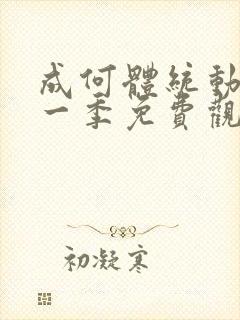 成何體統動
一季免費觀
初凝寒